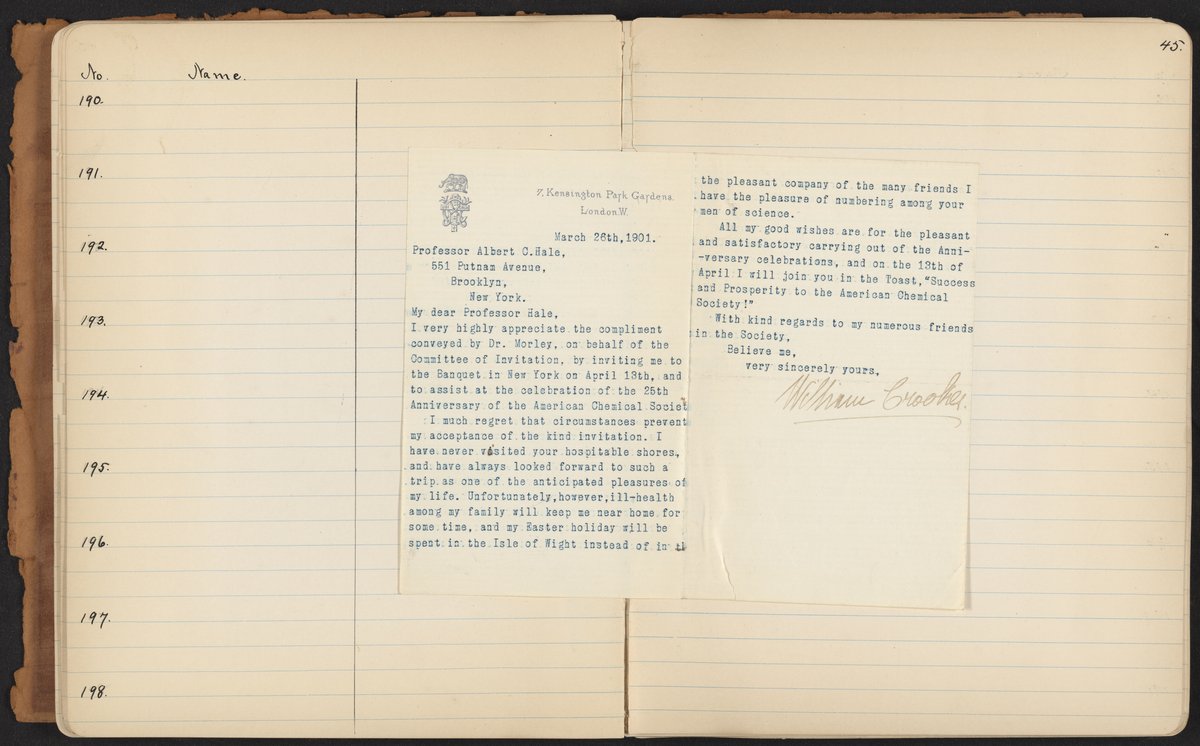 No. Name.
190.
191.
192.
193.
194.
195.
196.
197.
198.
45.
7, Kensington Park Gardens.
London.W.
March 26th,1901.
Professor Albert C.Hale,
551 Putnam Avenue,
Brooklyn,
New York.
My dear Professor Hale,
I very highly appreciate the compliment
conveyed by Dr. Morley, on behalf of the
Committee of Invitation, by inviting me to
the Banquet in New York on April 13th, and
to assist at the celebration of the 25th
Anniversary of the American Chemical Societ
I much regret that circumstances prevent
my acceptance of the kind invitation. I
have never visited your hospitable shores,
and have always looked forward to such a
trip as one of the anticipated pleasures of
my life. Unfortunately,however,ill-health
among my family will keep me near home for
some time, and my Easter holiday will be
spent in the Isle of Wight instead of in th
the pleasant company of the many friends I
have the pleasure of numbering among your
men of science.
All my good wishes are for the pleasant
and satisfactory carrying out of the Anni-
-versary celebrations, and on the 13th of
April I will join you in the Toast,"Success
and Prosperity to the American Chemical
Society!"
With kind regards to my numerous friends
in the Society,
Believe me,
very sincerely yours,
William Crookes.